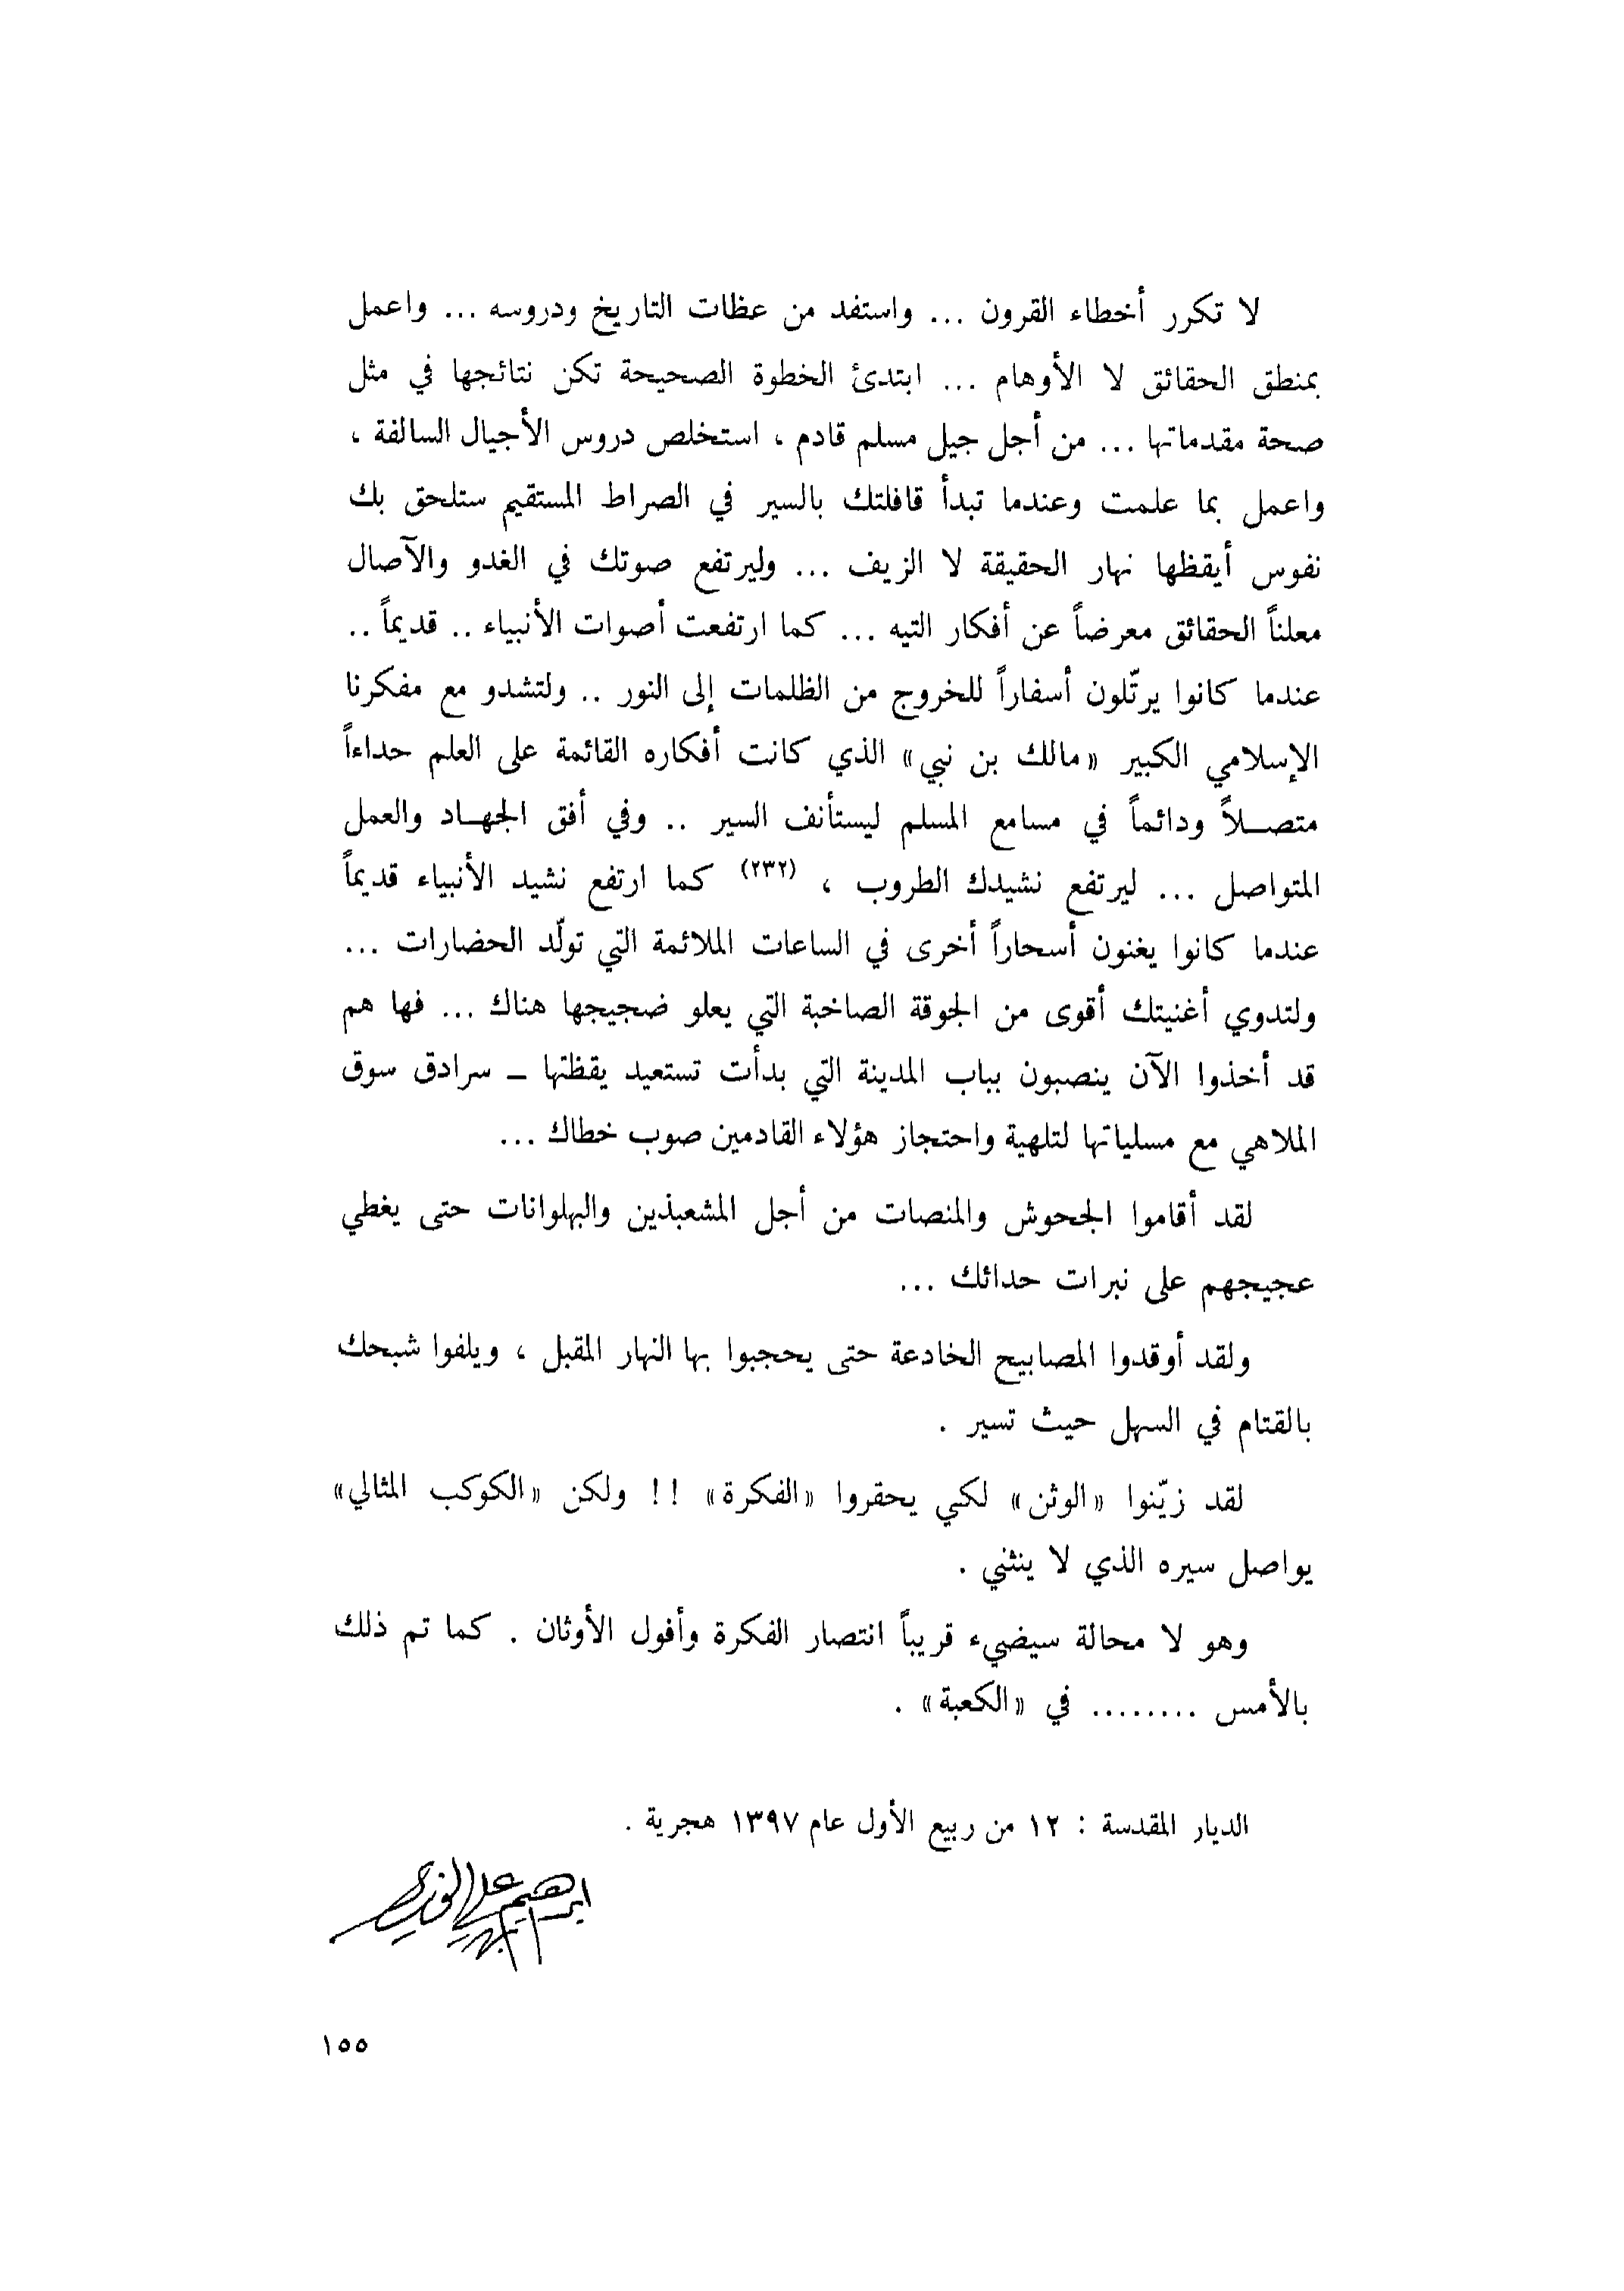 لا تكرر أخطاء القرون ... واستفد من عظات التاريخ ودروسه ... واعمل
بمنطق الحقائق لا الأوهام ... ابتدئ الخطوة الصحيحة تكن نتائجها في مثل
صحة مقدماتها ... من أجل جيل مسلم قادم ، استخلص دروس الأجيال السالفة ،
واعمل بما علمت وعندما تبدأ قافلتك بالسير في الصراط المستقيم ستلحق بك
نفوس أيقظها نهار الحقيقة لا الزيف ... وليرتفع صوتك في الغدو والآصال
معلناً الحقائق معرضاً عن أفكار التيه ... كما ارتفعت أصوات الأنبياء .. قديماً ..
عندما كانوا يرتّلون أسفاراً للخروج من الظلمات إلى النور .. ولتشدو مع مفكرنا
الإسلامي الكبير «مالك بن نبي» الذي كانت أفكاره القائمة على العلم حداءاً
متصـلاً ودائماً في مسامع المسلم ليستأنف السير .. وفي أفق الجهـاد والعمل
المتواصل ... ليرتفع نشيدك الطروب ، (٢٣٢) كما ارتفع نشيد الأنبياء قديماً
عندما كانوا يغنون أسحاراً أخرى في الساعات الملائمة التي تولّد الحضارات ...
ولتدوي أغنيتك أقوى من الجوقة الصاخبة التي يعلو ضجيجها هناك ... فها هم
قد أخذوا الآن ينصبون بباب المدينة التي بدأت تستعيد يقظتها ـ سرادق سوق
الملاهي مع مسلياتها لتلهية واحتجاز هؤلاء القادمين صوب خطاك ...
لقد أقاموا الجحوش والمنصات من أجل المشعبذين والبهلوانات حتى يغطي
عجيجهم على نبرات حدائك ...
ولقد أوقدوا المصابيح الخادعة حتى يحجبوا بها النهار المقبل ، ويلفوا شبحك
بالقتام في السهل حيث تسير .
لقد زيّنوا «الوثن» لكي يحقروا «الفكرة» !! ولكن «الكوكب المثالي»
يواصل سيره الذي لا ينثني .
وهو لا محالة سيضيء قريباً انتصار الفكرة وأفول الأوثان . كما تم ذلك
بالأمس ........ في «الكعبة» .
الديار المقدسة : ١٢ من ربيع الأول عام ١٣٩٧ هجرية .
ابراهيم علي
١٥٥